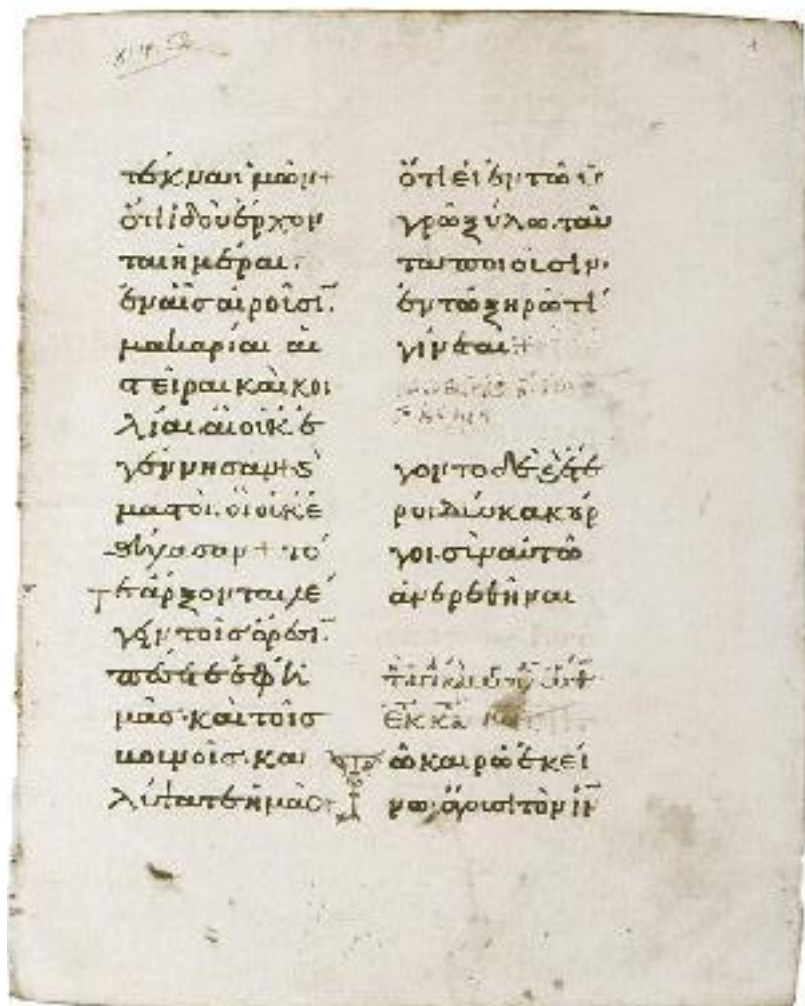 τέκνα ὑμῶν+
ὅτι ἰδοὺ ἔρχον
ται ἡμέραι.
ἐν αἷς αἱροῖσι.
μακάριαι αἱ
στεῖραι καὶ κοι
λίαι αἳ οὐκ ἐ
γέννησαν+ καὶ
μαστοὶ. οἳ οὐκ ἐ
θήλασαν+ τό
τε ἄρξονται λέ
γειν τοῖς ὄρεσι.
πέσετε ἐφ ἡ
μᾶς· καὶ τοῖς
βουνοῖς· κα
λύψατε ἡμᾶς+
ὅτι εἰ ἐν τῷ ὑ
γρῷ ξύλω. ταῦ
τα ποιοῦσιν·
ἐν τῷ ξηρῷ τί
γίνεται+
γοντο δὲ ἕτε
ροι δύο κακοῦρ
γοι· σὺν αὐτῷ
ἀναιρεθῆναι
Τῷ καιρῷ ἐκεί
νω. ἄγουσι τὸν ιν